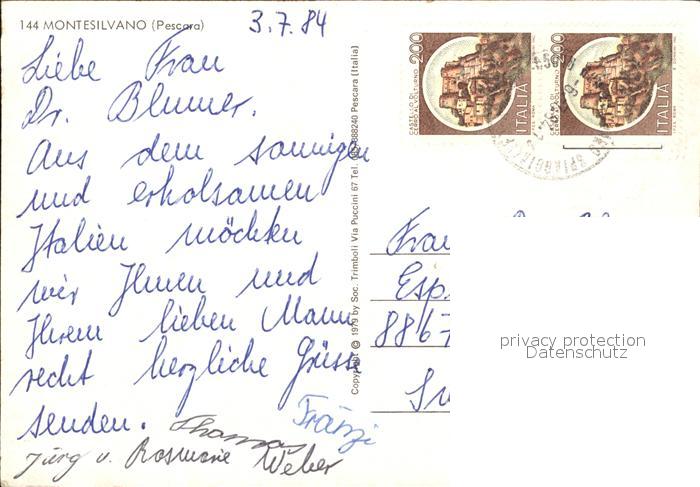 144 MONTESILVANO (Pescara)
3.7.84
Liebe Frau
Dr. Blumer.
Aus dem sonnigen
und erholsamen
Italien möchten
wir Ihnen und
Ihrem lieben Mann
recht herzliche Grüsse
senden.
Thomas
Fränzi
Jürg u. Rosmarie Weber
Copyright © 1979 by Soc. Trimboli Via Puccini 67 Tel. 888240 Pescara (Italia)
200
CASTELLO DI
CERRO AL VOLTURNO
ITALIA
200
CASTELLO DI
CERRO AL VOLTURNO
ITALIA
Frau
Esp.
8867
privacy protection
Datenschutz